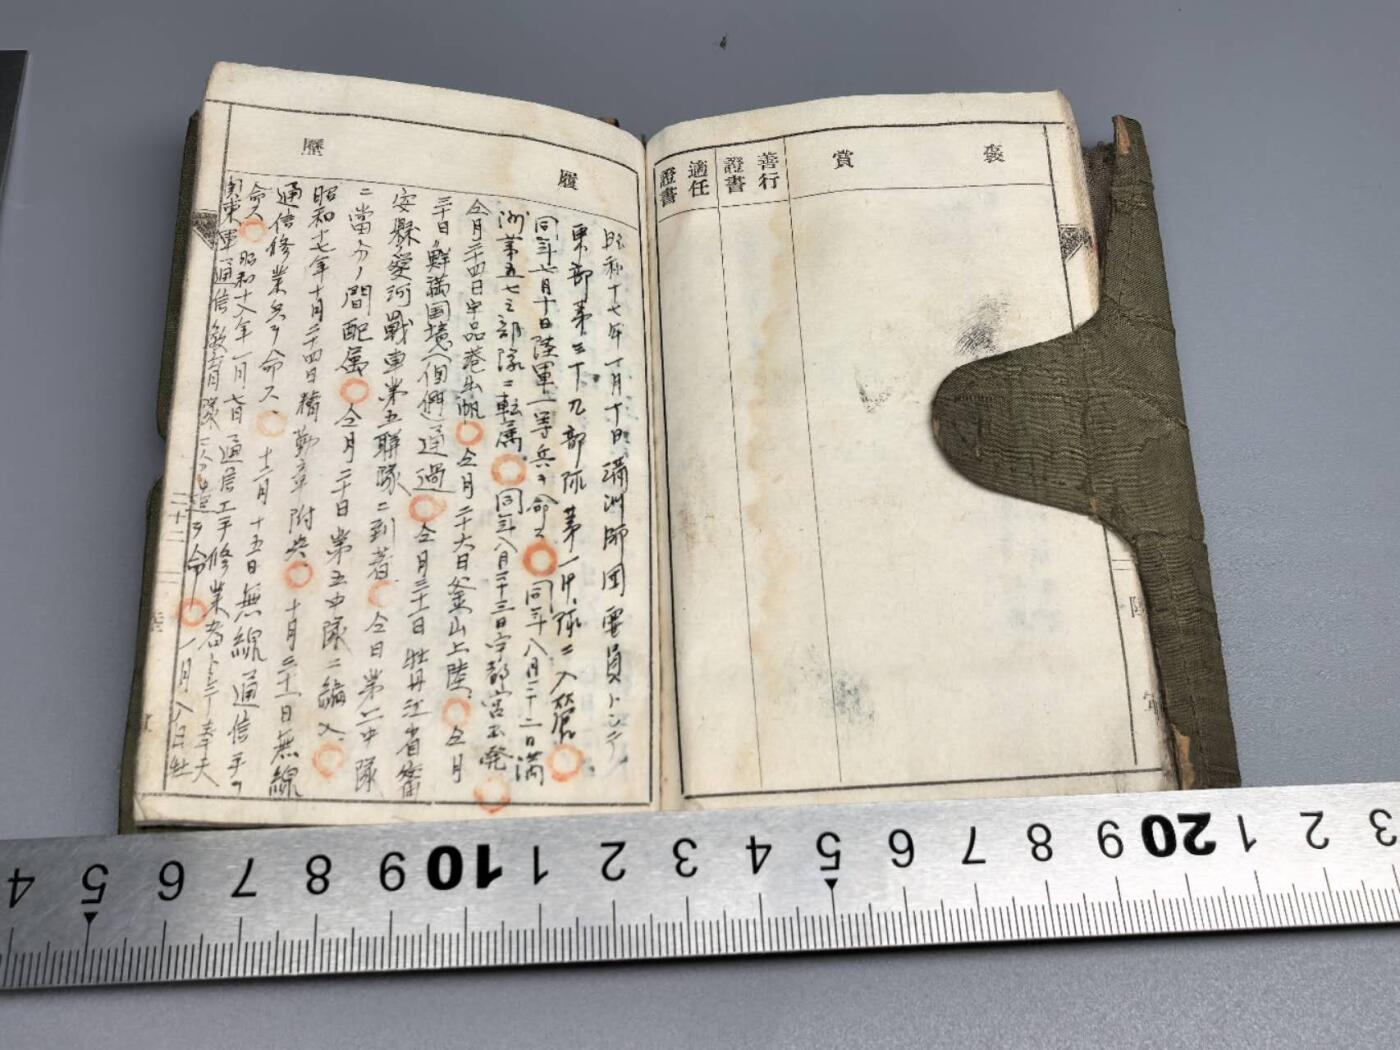 褒賞
善行證書
適任證書
陸軍
履歷
昭和十七年一月十日滿洲師団要員トシテ
東部第三十九部隊第一中隊ニ入營
同年七月十日陸軍一等兵ヲ命ス 同年八月二十二日満
洲第五七三部隊ニ転属 同年八月二十三日宇都宮出発
仝月二十四日 品港出帆 仝月二十六日釜山上陸 仝月
三十日鮮満国境 通過 仝月三十一日牡丹江省寗
安縣愛河戦車第五聯隊ニ到着 仝日第二中隊
ニ當分ノ間配属 仝月三十日第五中隊ニ編入
昭和十七年十月二十四日精勤章附与 十月三十一日無線
通信修業兵ヲ命ス 十二月十五日無線通信手ヲ
命ス 昭和十八年一月七日通信工手修業者トシテ奉天
関東軍通信教育隊 ヲ命ス 一月八日牡
二十二
4 5 6 7 8 9 10 1 2 3 4 5 6 7 8 9 20 1 2 3